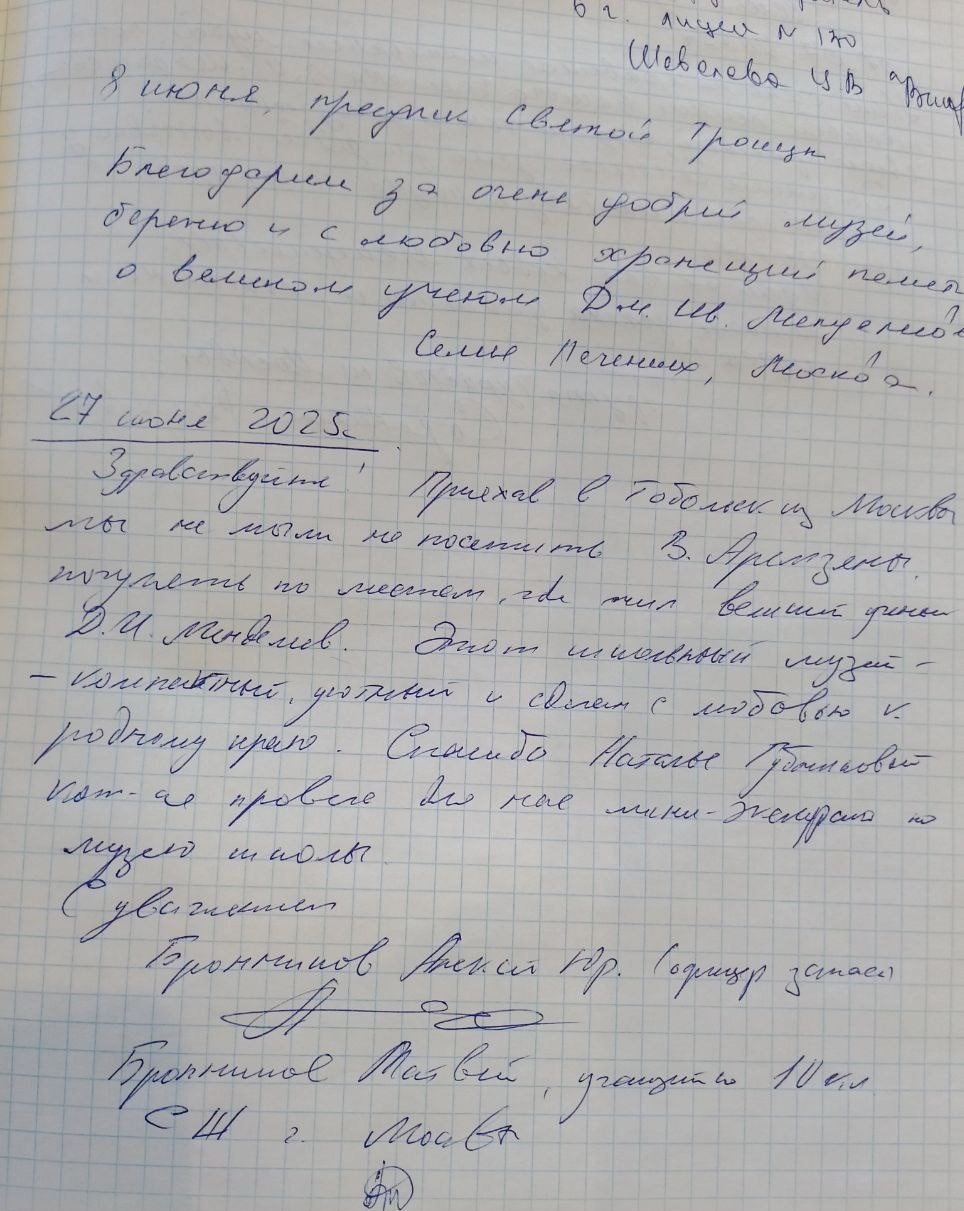 6 г. лицея N 130
Шевелева Ц.В
8 июня, праздник Святой Троицы
Благодарим за очень добрый музей,
бережно и с любовью хранящий память
о великом ученом Дм. Ив. Менделеев
Семья Печениных, Москва.
27 июня 2025г.
Здравствуйте! Приехав в Тобольск из Москвы
мы не могли не посетить В. Аремзяны,
погулять по местам, где жил великий ученый
Д.И. Менделеев. Этот школьный музей -
- компактный, уютный и сделан с любовью к
родному краю. Спасибо Наталье
кот-ая провела для нас мини-экскурсию по
музею школы.
С уважением
Бронников Алексей Юр. (офицер запаса
Бронников Матвей, учащийся 10 кл
СШ г. Москва